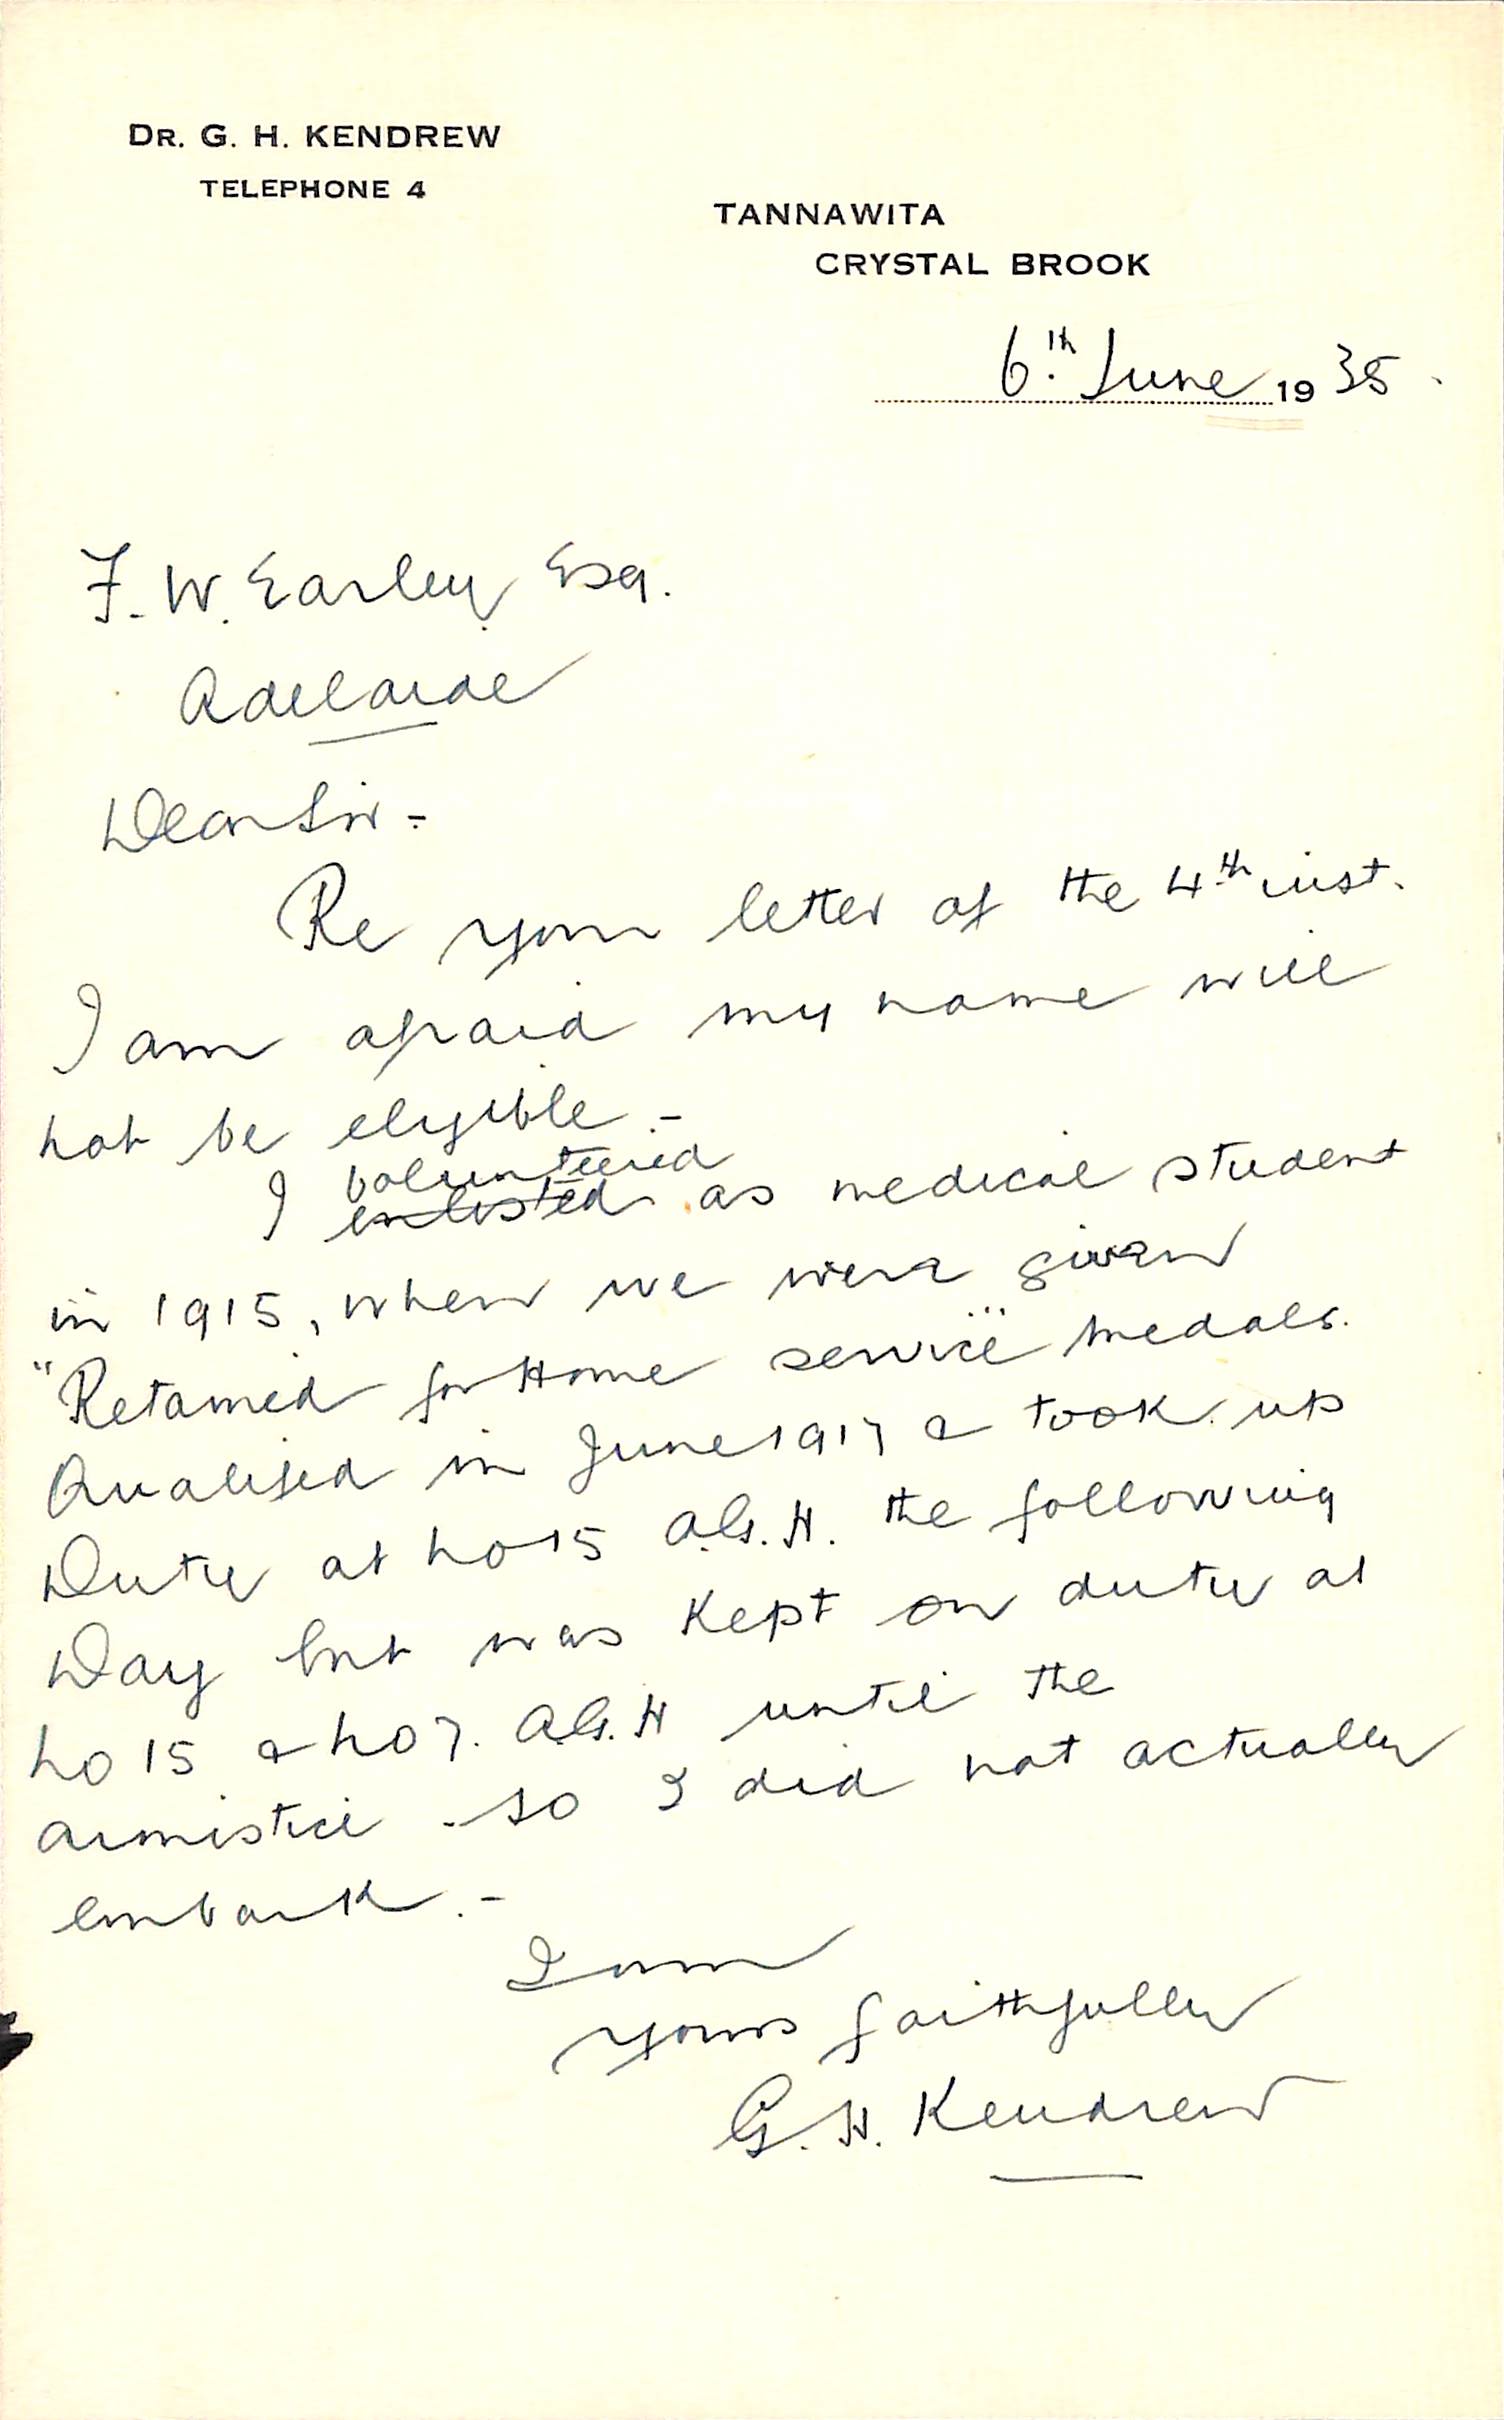 DR. G. H. KENDREW
TELEPHONE 4
TANNAWITA
CRYSTAL BROOK
6th June 1935.
F. W. Earley Esq.
Adelaide
Dear Sir -
Re your letter of the 4th inst.
I am afraid my name will
not be eligible. -
volunteered
I enlisted as medical student
in 1915, when we were given
"Retained for Home service" medals.
Qualified in June 1917 & took up
Duty at No 15 A.G.H. the following
Day but was kept on duty at
No 15 & No 7. A.G.H until the
armistice - so I did not actually
embark. -
I am
Yours faithfully
G. H. Kendrew